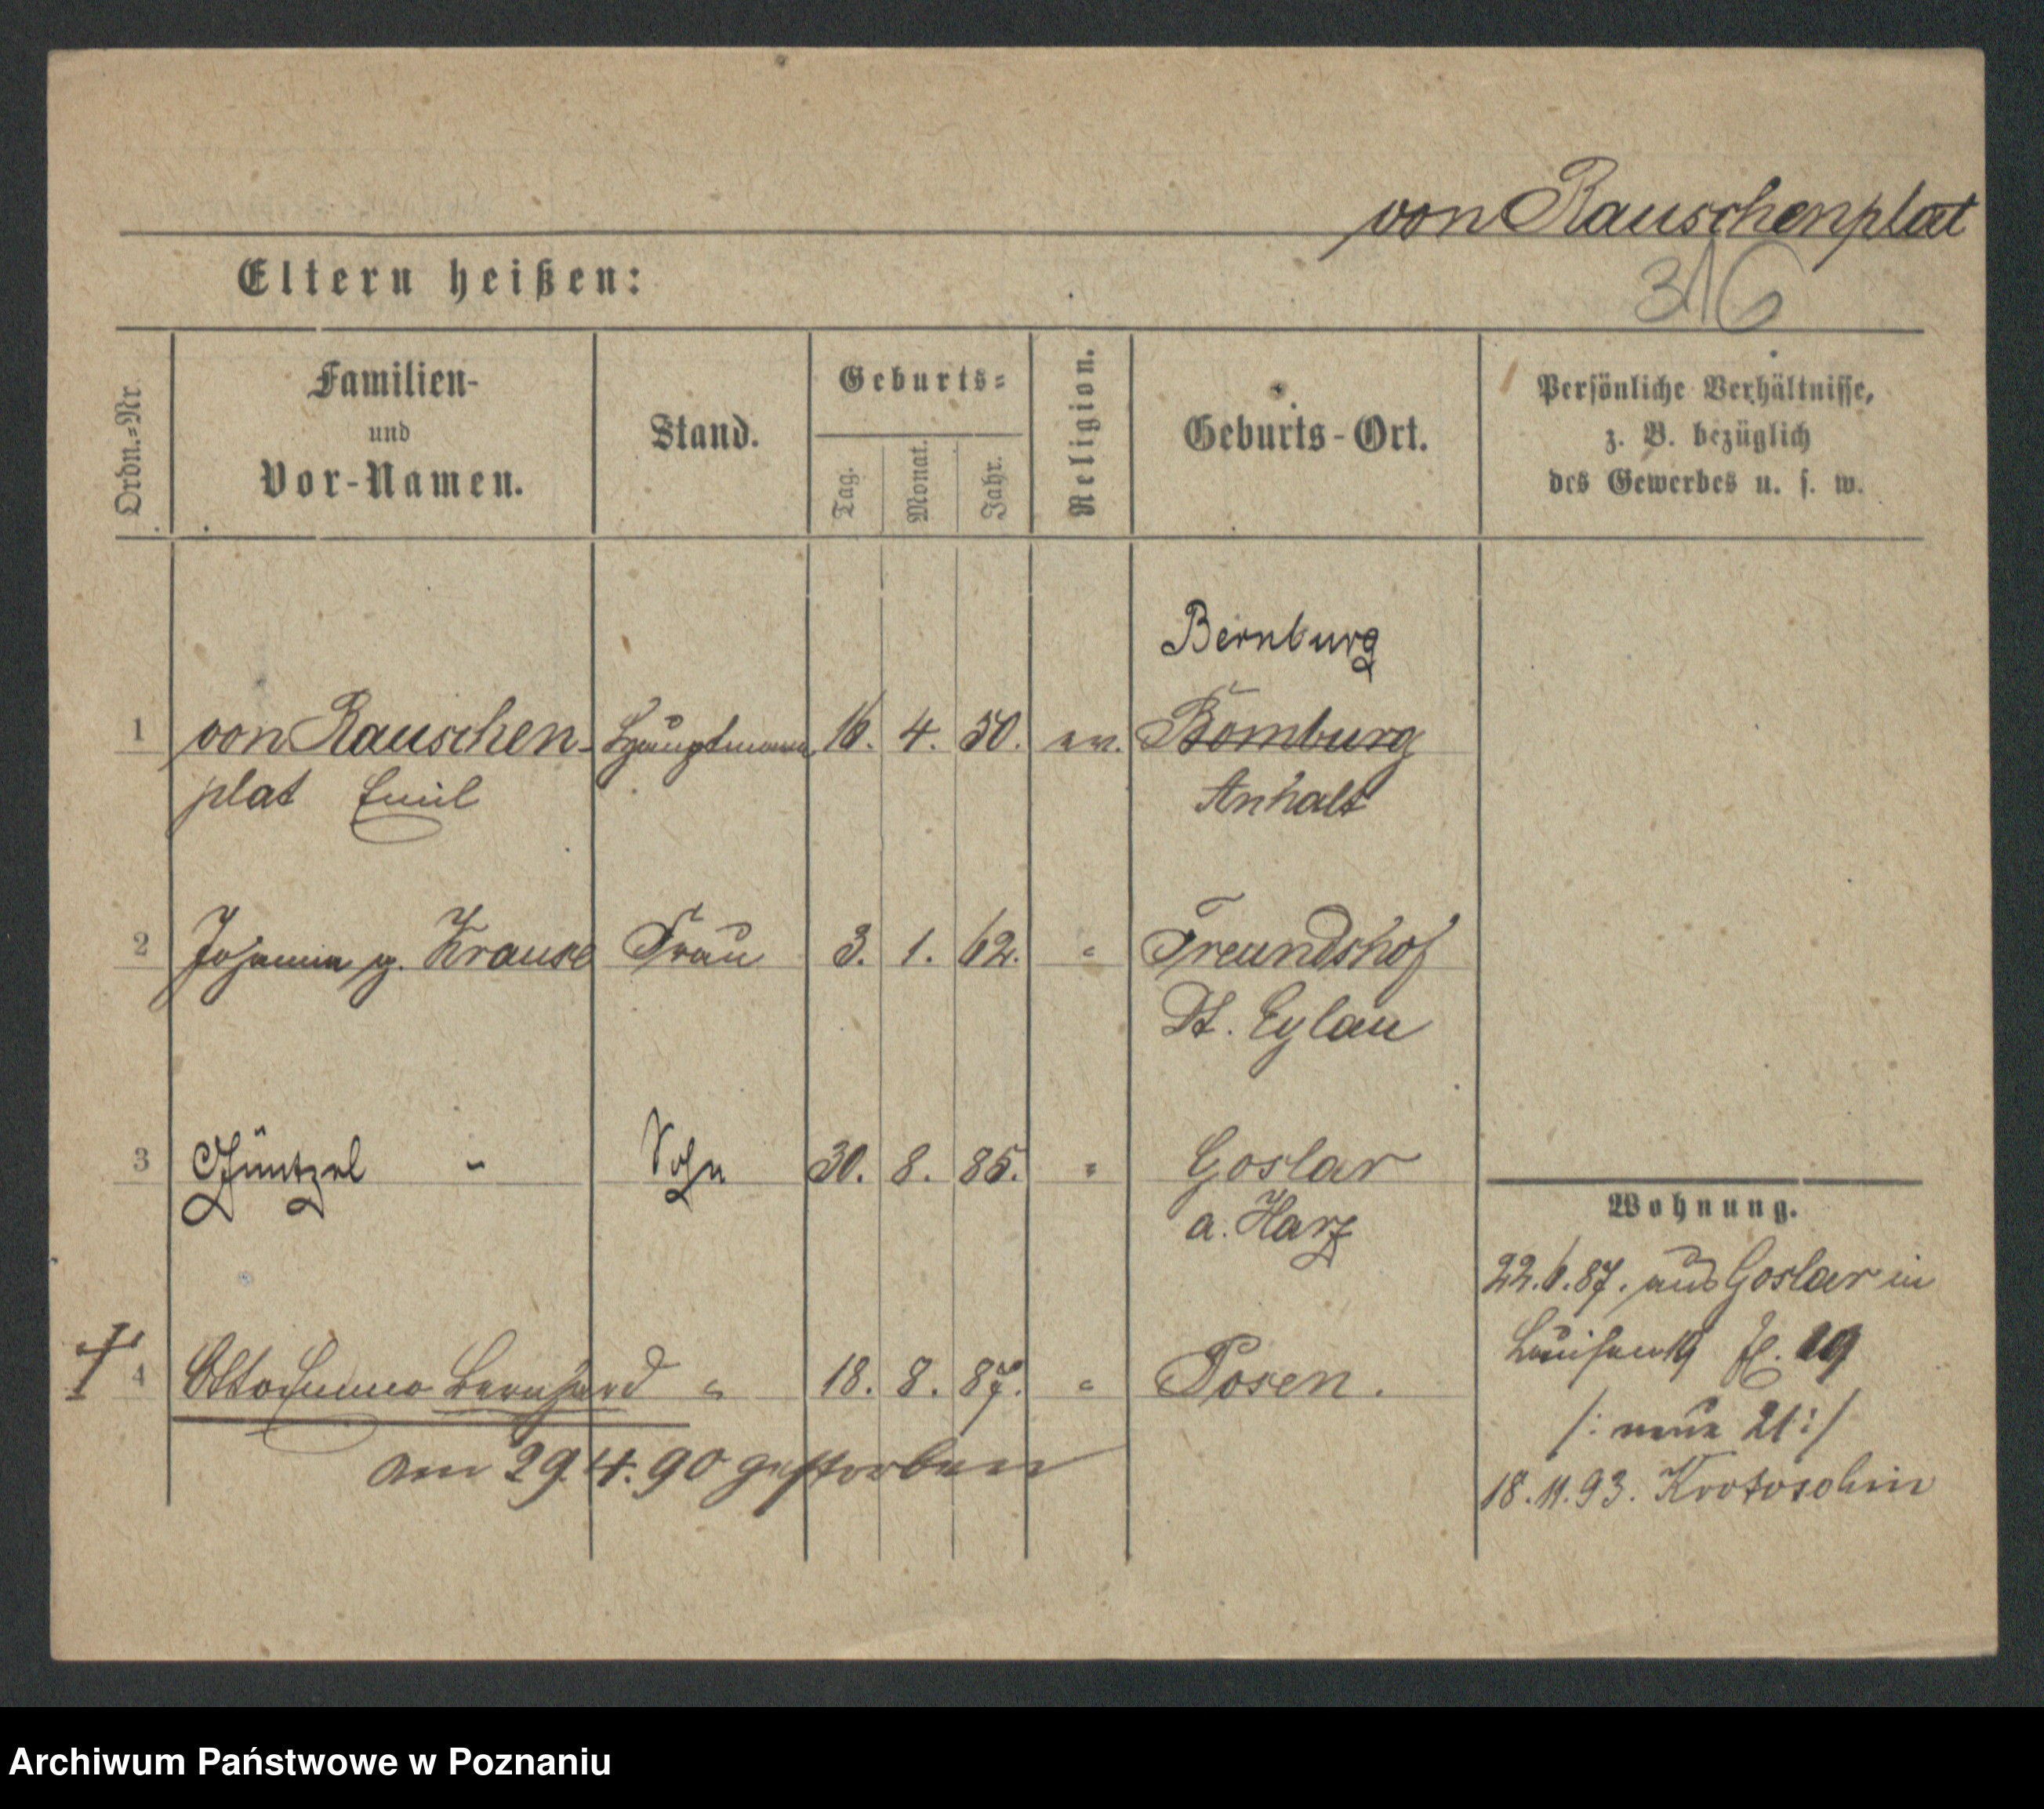 von Rauschenplat
316
Eltern heißen:
Ordn.=Nr.
Familien-
und
Vor-Namen.
Stand.
Geburts=
Tag.
Monat.
Jahr.
Religion.
Geburts-Ort.
Persönliche Verhältnisse,
z. B. bezüglich
des Gewerbes u. s. w.
Bernburg
1 von Rauschen- Hauptmann 16. 4. 50. ev. Bomburg
plat Emil Anhalt
2 Johanna g. Krause Frau 3. 1. 62. " Freundshof
Dt. Eylau
3 Güntzel " Sohn 30. 8. 85. " Goslar
a. Harz
Wohnung.
22.6.87. aus Goslar in
Louisen 19
/: neue 21 :/
18.11.93. Krotoschin
† 4 Otto Bernhard " 18. 8. 87. " Posen.
am 29.4.90 gestorben
Archiwum Państwowe w Poznaniu